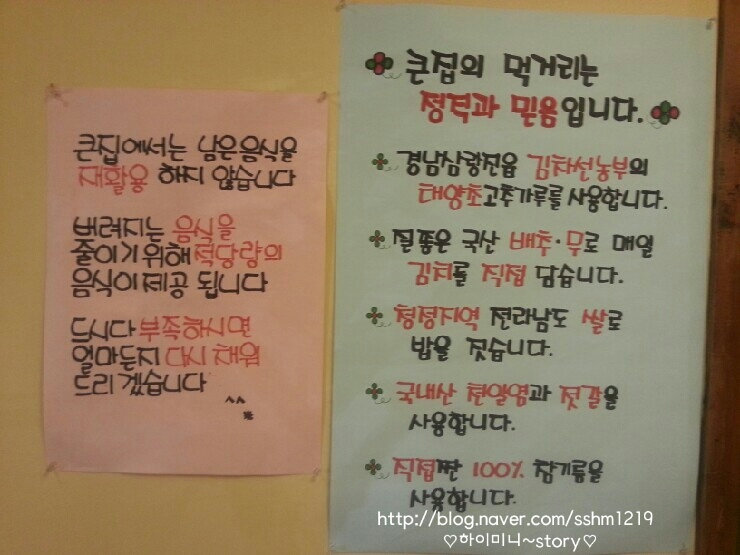 큰집에서는 남은음식을
재활용 하지 않습니다
버려지는 음식을
줄이기 위해 적당량의
음식이 제공 됩니다
드시다 부족하시면
얼마든지 다시 채워
드리겠습니다
^^
큰집의 먹거리는
정직과 믿음입니다.
경남삼랑진읍 김차선농부의
태양초고추가루를 사용합니다.
질좋은 국산 배추·무로 매일
김치를 직접 담습니다.
청정지역 전라남도 쌀로
밥을 짓습니다.
국내산 천일염과 젓갈을
사용합니다.
직접짠 100% 참기름을
사용합니다.
http://blog.naver.com/sshm1219
♡하이미니~story♡